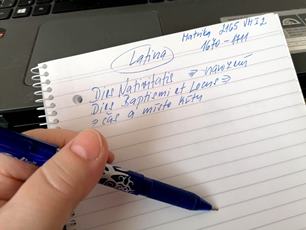 Matrika 2165 VHI2
1670-1711
Latina
Dies Nativitatis => narození
Dies Baptismi et Locus =>
=> čas a místo křtu